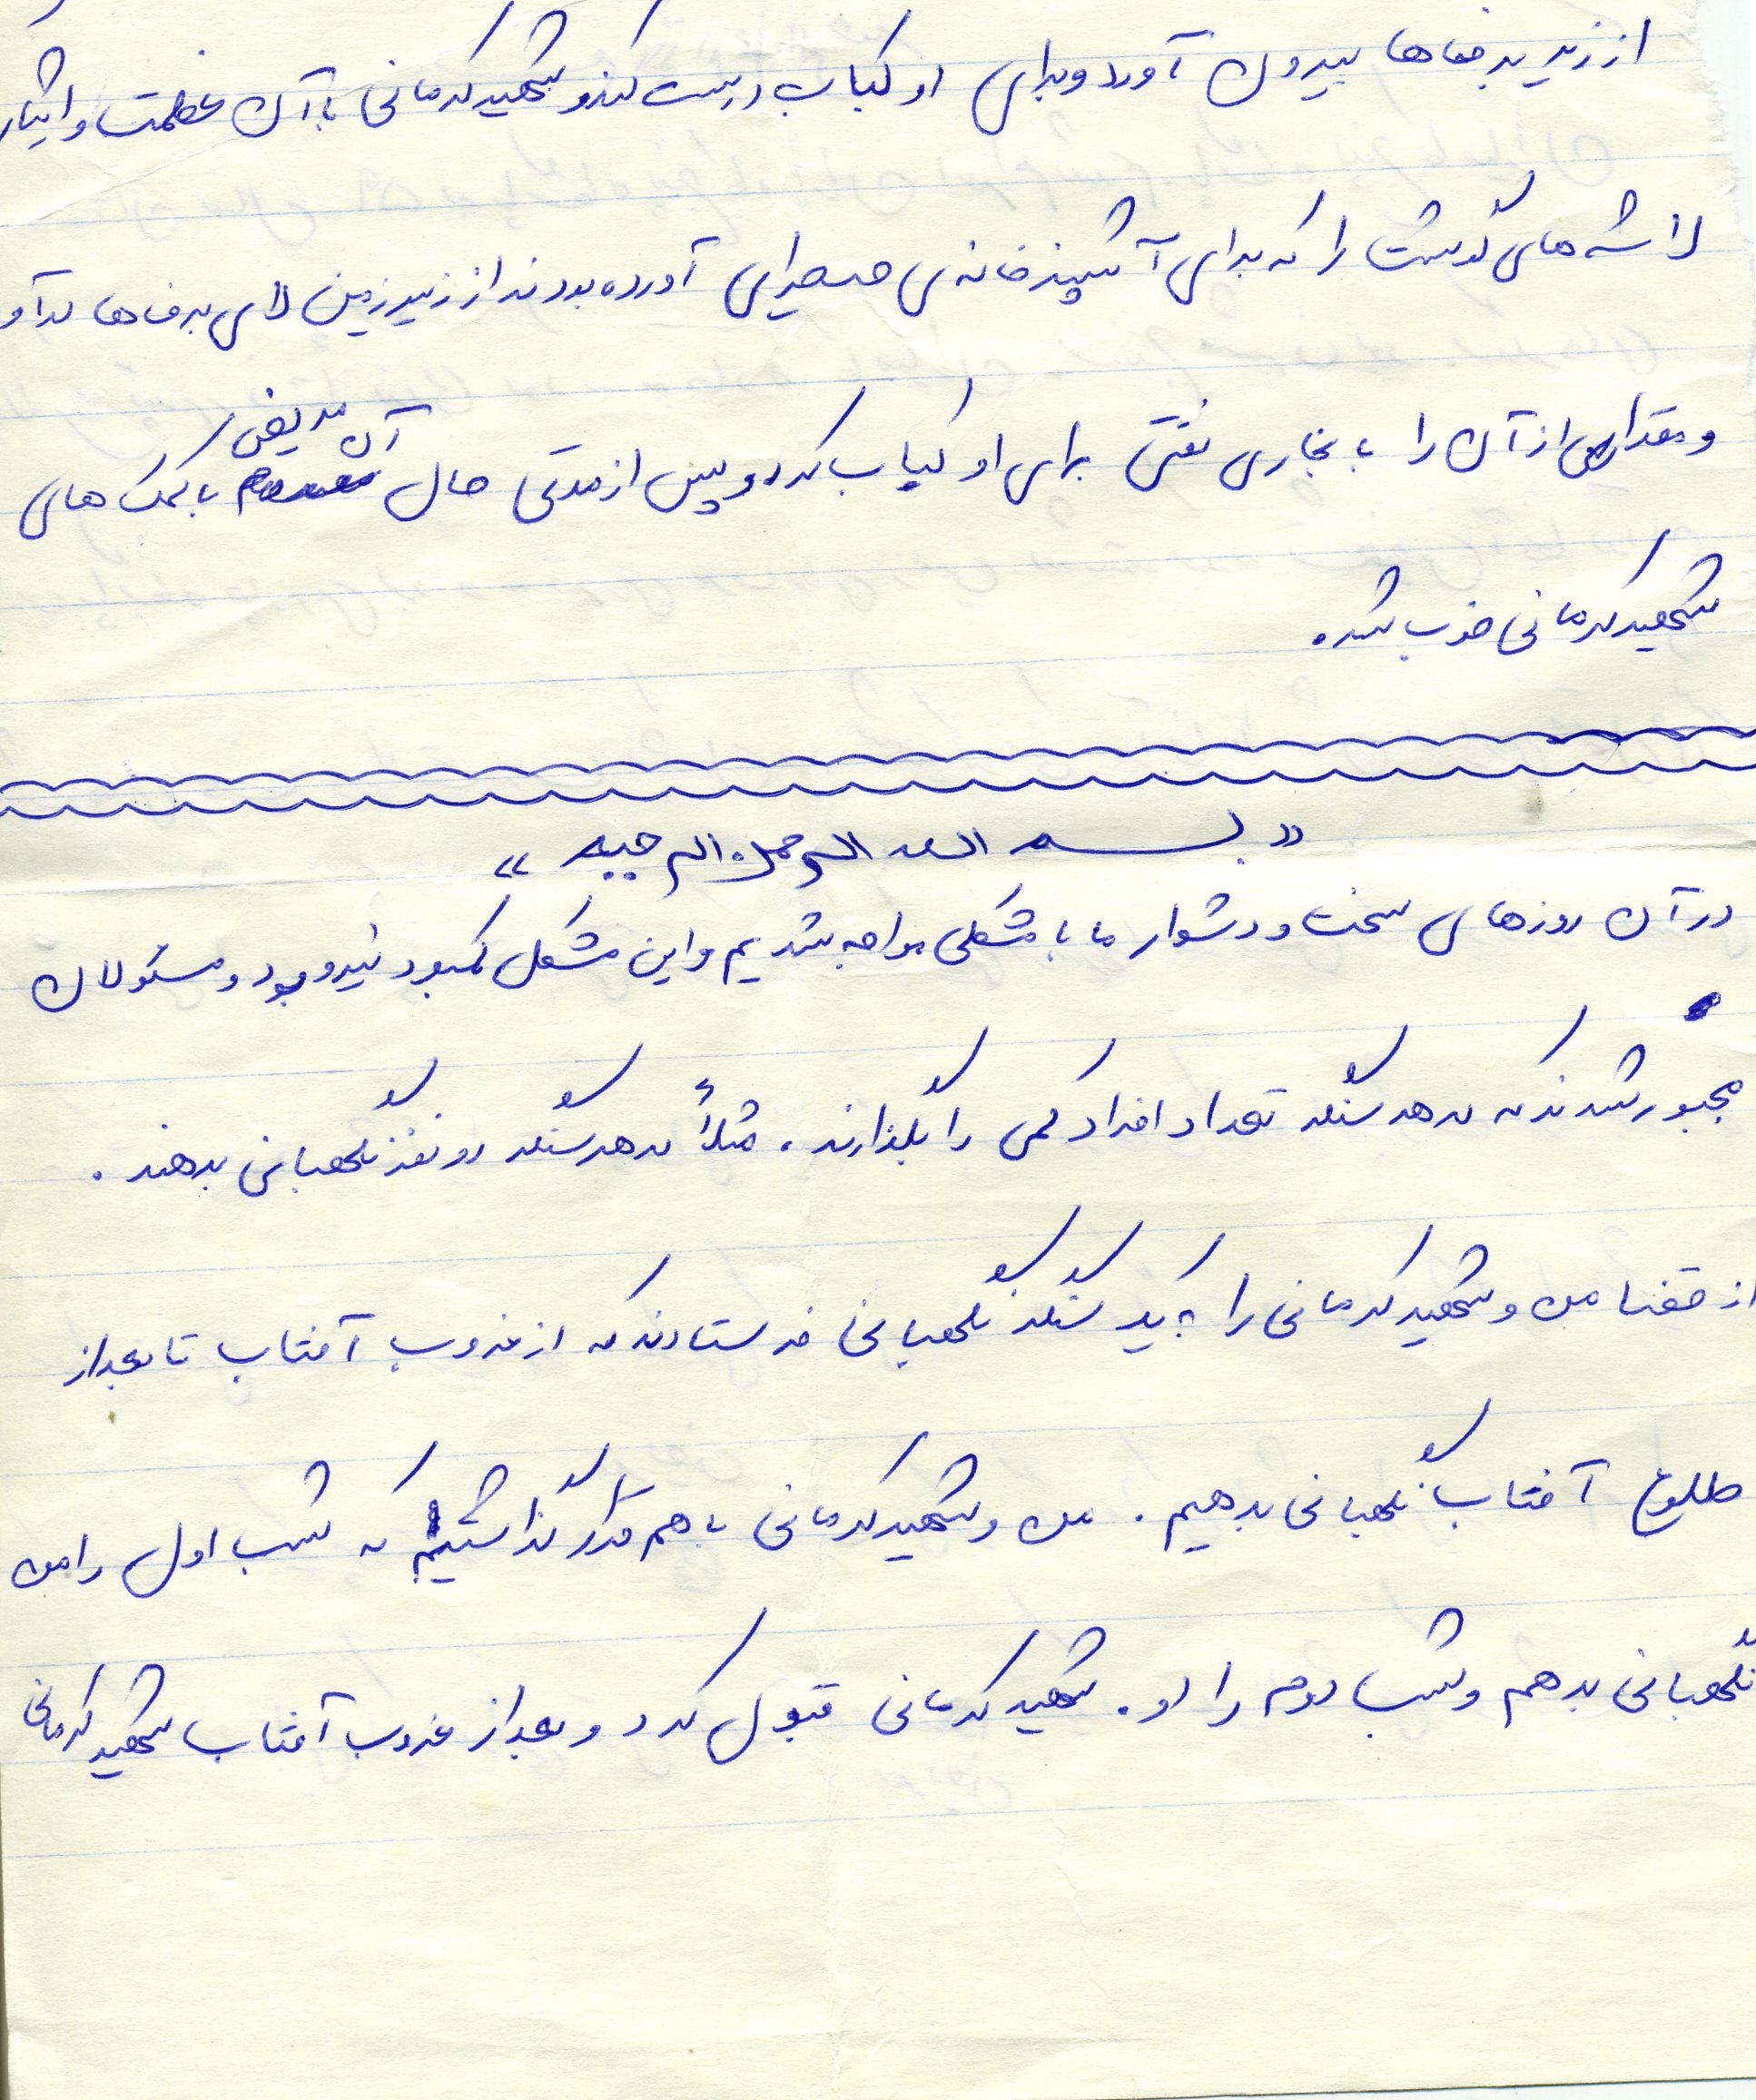 از زیر برف‌ها بیرون آورد و برای او کباب درست کند و شهید کرمانی با آن عظمت و ایثار
لاشه های گوشت را که برای آشپزخانه ی صحرایی آورده بودند از زیرزمین لای برف ها درآو
و مقداری از آن را با بخاری نفتی برای او کباب کرد و پس از مدتی حال آن مریض با کمک های
شهید کرمانی خوب شد.
« بسم الله الرحمن الرحیم »
در آن روزهای سخت و دشوار ما با مشکلی مواجه شدیم و این مشکل کمبود نیرو بود و مسئولان
مجبور شدند که در هر سنگر تعداد افراد کمی را بگذارند. مثلاً در هر سنگر دو نفر نگهبانی بدهند.
از قضا من و شهید کرمانی را به یک سنگر نگهبانی فرستادند که از غروب آفتاب تا بعد از
طلوع آفتاب نگهبانی بدهیم. من و شهید کرمانی با هم قرار گذاشتیم که شب اول را من
نگهبانی بدهم و شب دوم را او. شهید کرمانی قبول کرد و بعد از غروب آفتاب شهید کرمانی